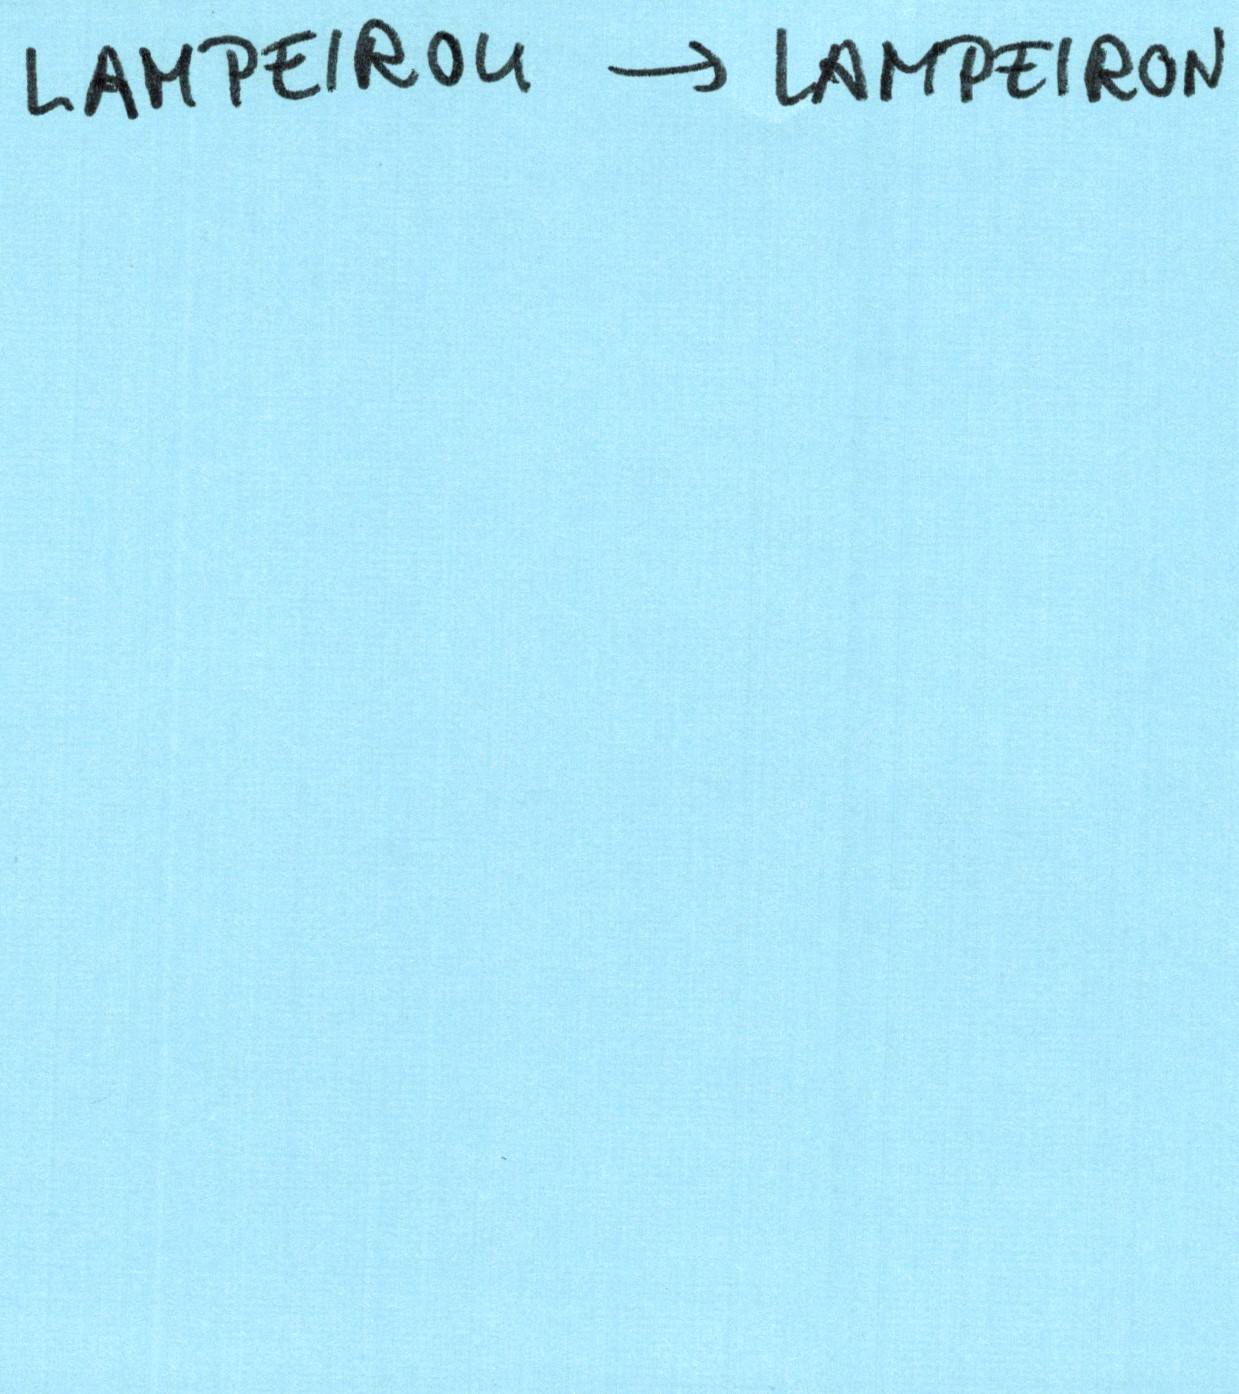 LAMPEIROU → LAMPEIRON